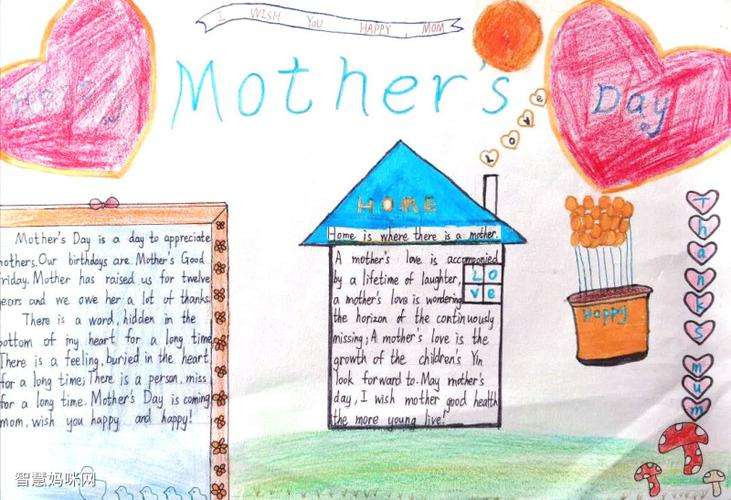 I WISH YOU HAPPY MOM
Mother's
Day
Love
HOME
Home is where there is a mother.
Mother's Day is a day to appreciate
mothers.Our birthdays are Mother's Good
Friday. Mother has raised us for twelve
years and we owe her a lot of thanks
There is a word, hidden in the
bottom of my heart for a long time
There is a feeling, buried in the heart
for a long time; There is a person, miss
for a long time. Mother's Day is coming
mom, wish you happy and happy!
A mother's love is accompanied
by a lifetime of laughter,
a mother's love is wondering
the horizon of the continuously
missing; A mother's love is the
growth of the children's Yin
look forward to. May mother's
day, I wish mother good health
the more young live!
LO
Ve
Happy
Thanks mum
智慧妈咪网